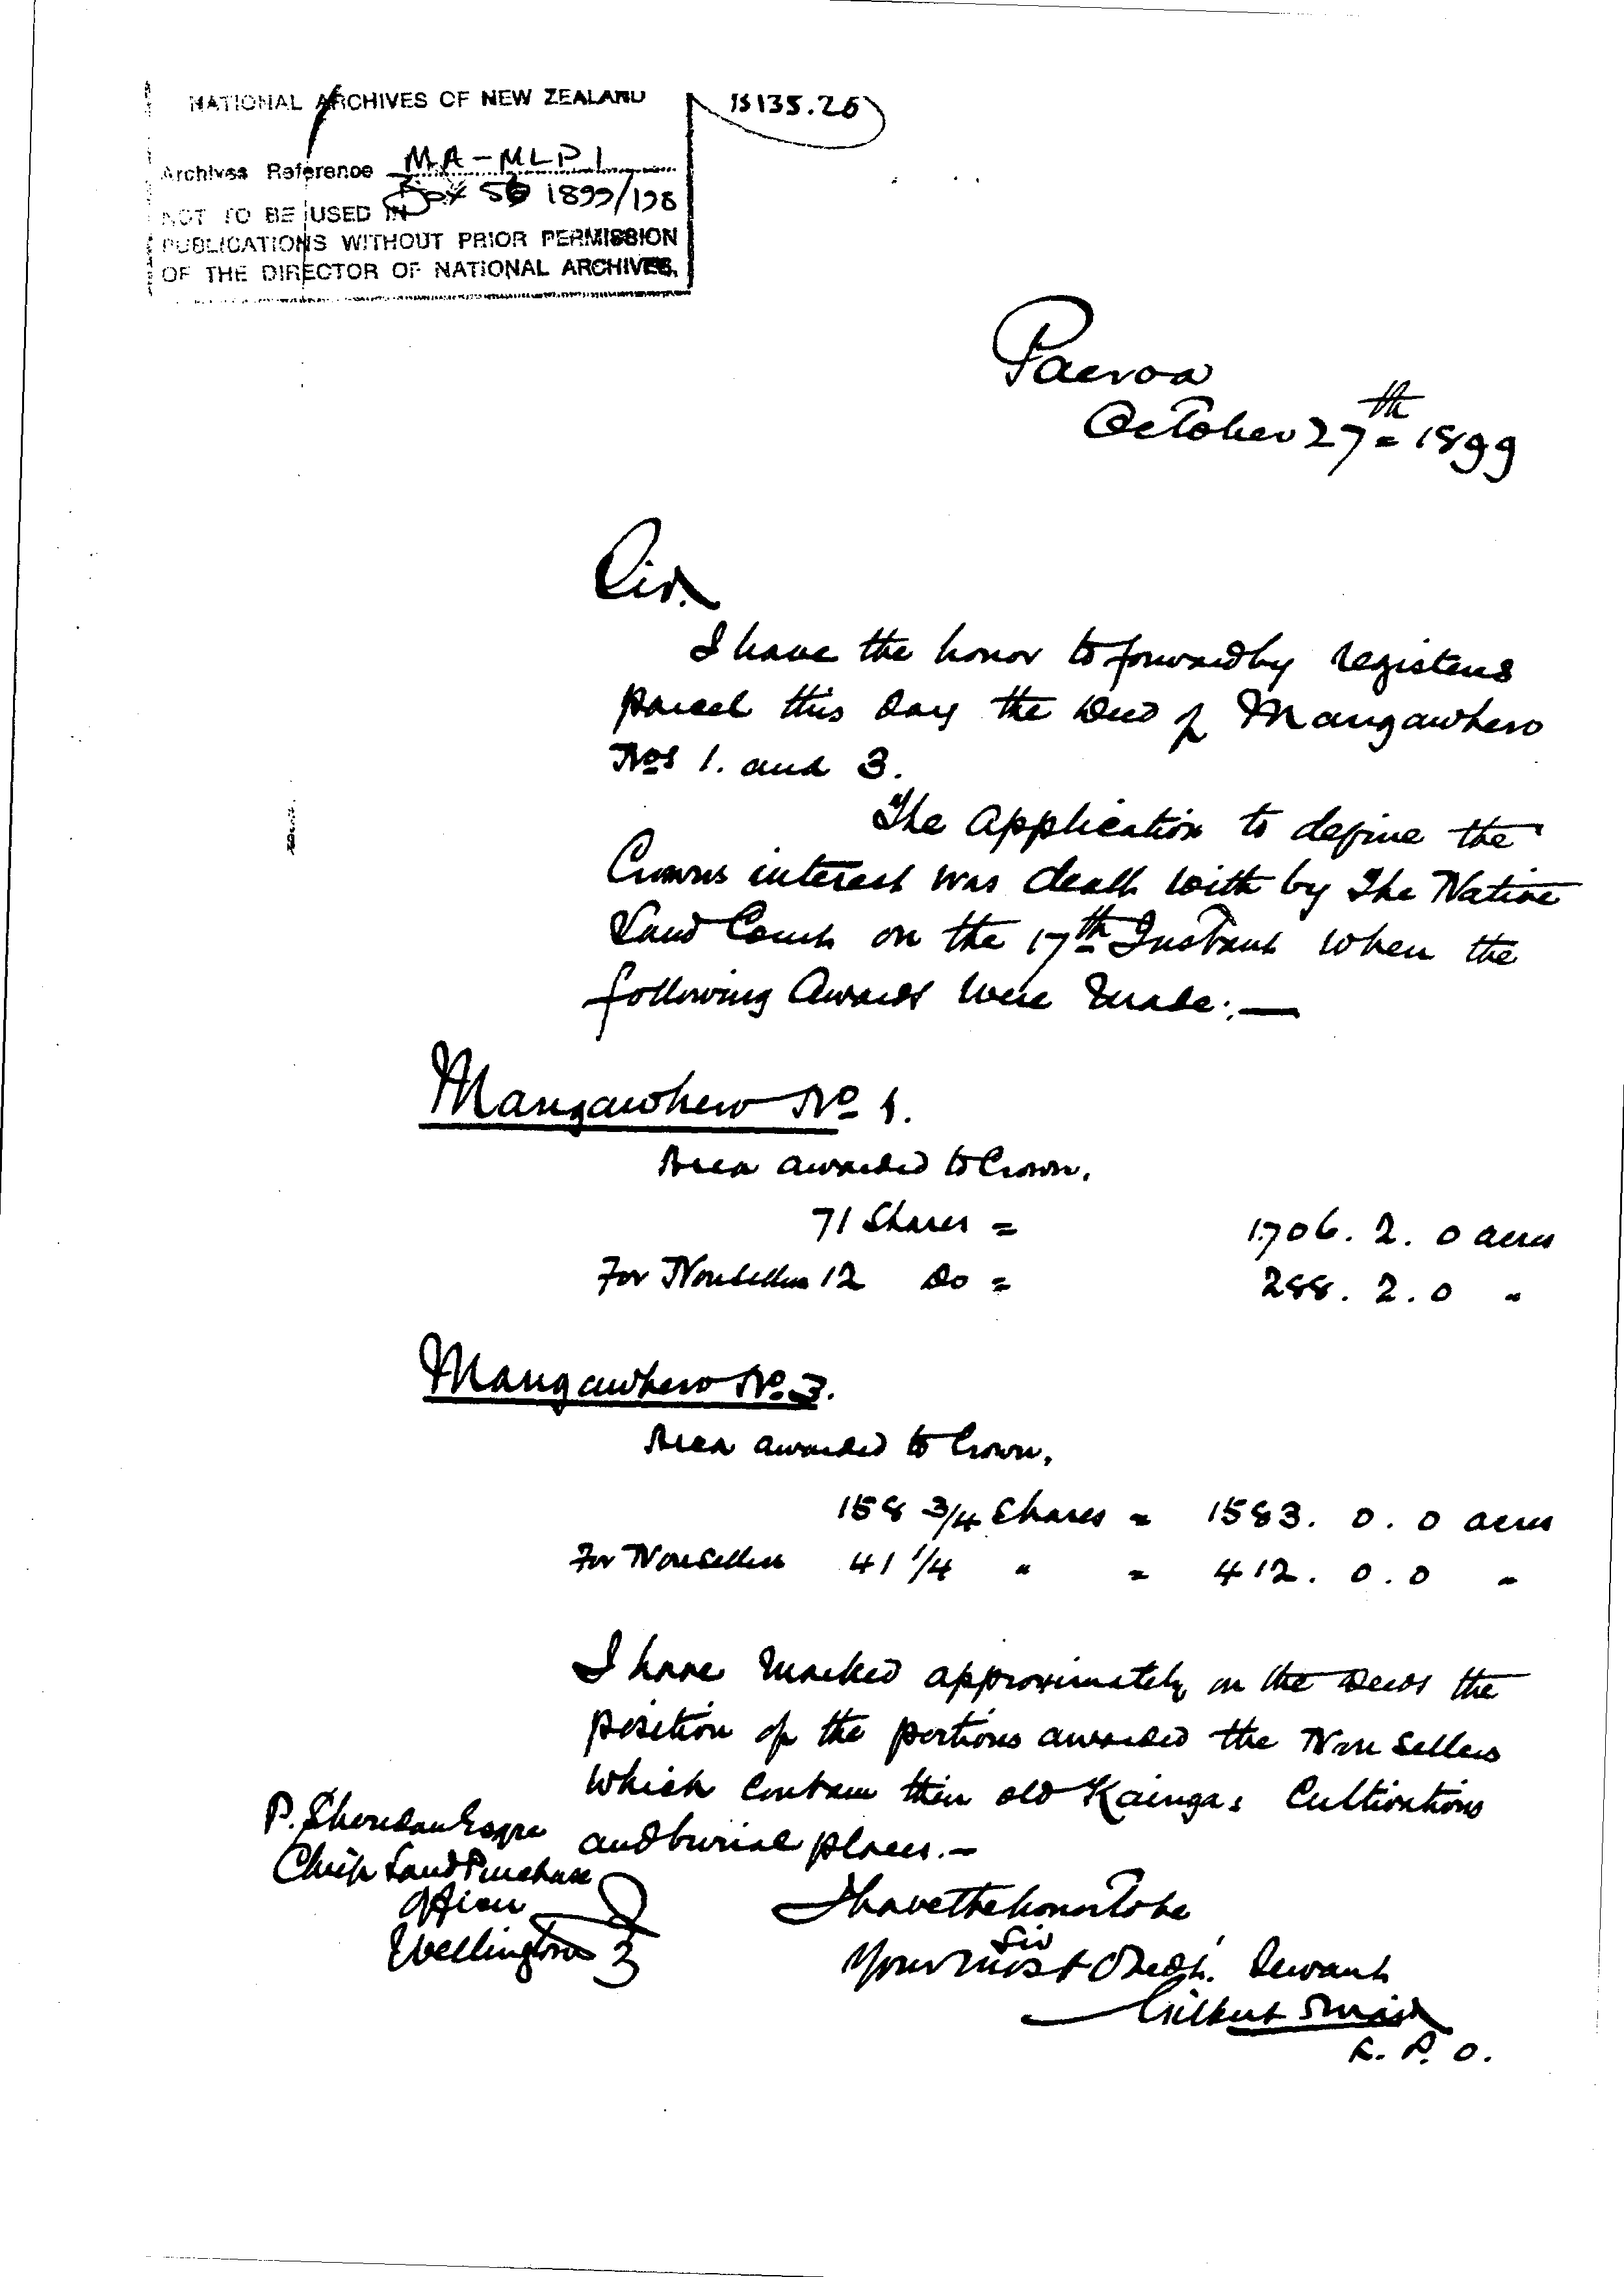 NATIONAL ARCHIVES OF NEW ZEALAND
Archives Reference MA-MLP 1
Box 56 1899/198
NOT TO BE USED IN
PUBLICATIONS WITHOUT PRIOR PERMISSION
OF THE DIRECTOR OF NATIONAL ARCHIVES.
Paeroa
October 27th 1899
Sir.
I have the honor to forward by registered
parcel this day the Deed of Mangawhero
Nos 1. and 3.
The Application to define the
Crowns interest was dealt with by The Native
Land Court on the 17th Instant when the
following Awards were made:—
Mangawhero No 1.
Area awarded to Crown.
71 Shares = 1706. 2. 0 acres
For Nonsellers 12 Do = 288. 2. 0 "
Mangawhero No. 3.
Area awarded to Crown.
158 3/4 Shares = 1583. 0. 0 acres
For Nonsellers 41 1/4 " = 412. 0. 0 "
I have marked approximately on the Deeds the
position of the portions awarded the Non Sellers
which contain their old Kaingas Cultivations
and burial places.—
P. Sheridan Esqre
Chief Land Purchase
Officer
Wellington
I have the honor to be
Sir
Your most Obedt. Servant
Gilbert Mair
L. P. O.